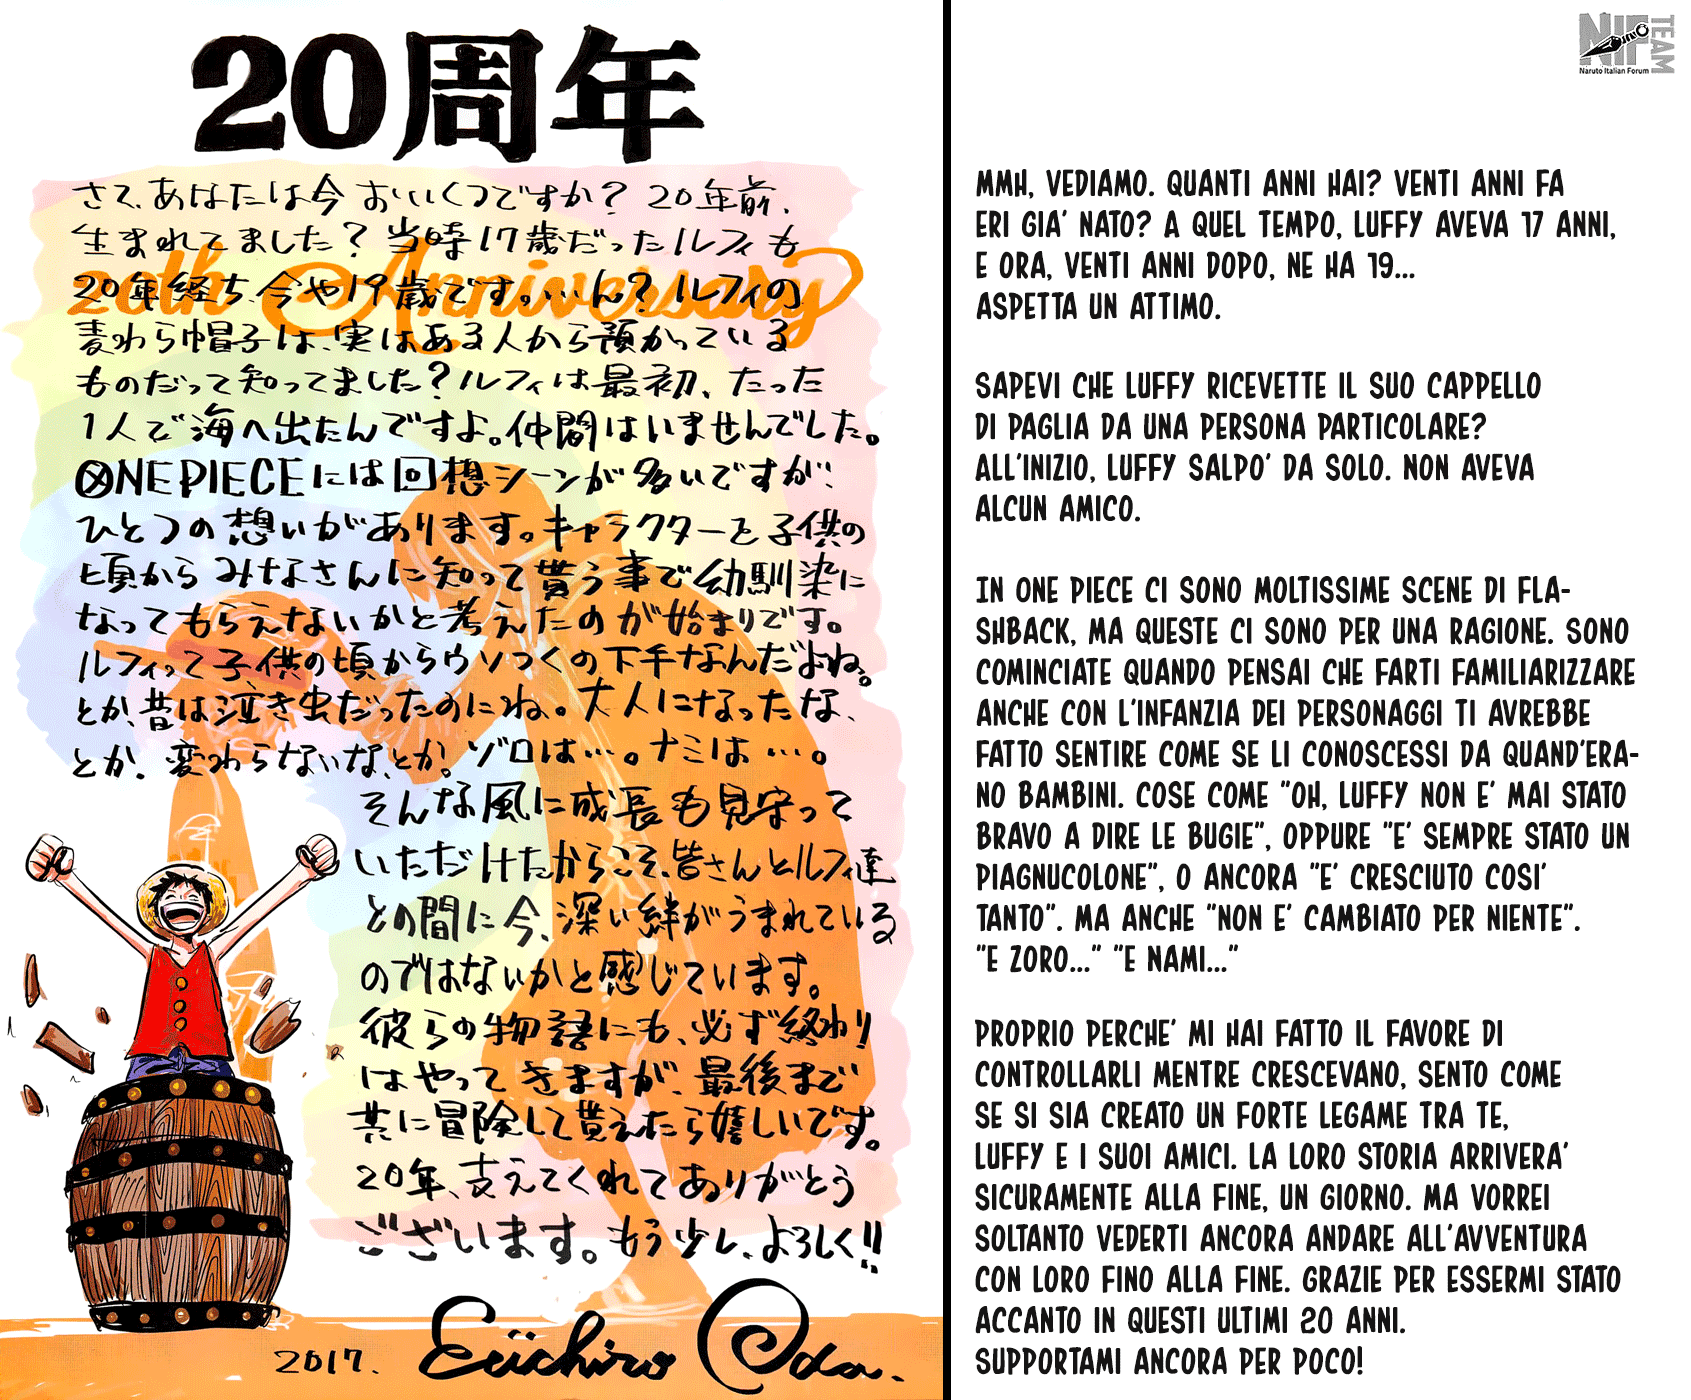 20周年
さて、あなたは今おいくつですか？20年前、
生まれてました？当時17歳だったルフィも
20th Anniversary
20年経ち、今や19歳です。…ん？ルフィの
麦わら帽子は、実はある人から預かっている
ものだって知ってました？ルフィは最初、たった
1人で海へ出たんですよ。仲間はいませんでした。
ONE PIECEには回想シーンが多いですが、
ひとつの想いがあります。キャラクターを子供の
頃からみなさんに知って貰う事で幼馴染に
なってもらえないかと考えたのが始まりです。
ルフィって子供の頃からウソつくの下手なんだよね。
とか、昔は泣き虫だったのにね。大人になったな、
とか、変わらないな、とか。ゾロは…。ナミは…。
そんな風に成長も見守って
いただけたからこそ、皆さんとルフィ達
との間に今、深い絆がうまれている
のではないかと感じています。
彼らの物語にも、必ず終わり
はやってきますが、最後まで
共に冒険して貰えたら嬉しいです。
20年、支えてくれてありがとう
ございます。もう少し、よろしく!!
2017. Eiichiro Oda.
NIF TEAM
Naruto Italian Forum
MMH, VEDIAMO. QUANTI ANNI HAI? VENTI ANNI FA
ERI GIA' NATO? A QUEL TEMPO, LUFFY AVEVA 17 ANNI,
E ORA, VENTI ANNI DOPO, NE HA 19...
ASPETTA UN ATTIMO.
SAPEVI CHE LUFFY RICEVETTE IL SUO CAPPELLO
DI PAGLIA DA UNA PERSONA PARTICOLARE?
ALL'INIZIO, LUFFY SALPO' DA SOLO. NON AVEVA
ALCUN AMICO.
IN ONE PIECE CI SONO MOLTISSIME SCENE DI FLA-
SHBACK, MA QUESTE CI SONO PER UNA RAGIONE. SONO
COMINCIATE QUANDO PENSAI CHE FARTI FAMILIARIZZARE
ANCHE CON L'INFANZIA DEI PERSONAGGI TI AVREBBE
FATTO SENTIRE COME SE LI CONOSCESSI DA QUAND'ERA-
NO BAMBINI. COSE COME "OH, LUFFY NON E' MAI STATO
BRAVO A DIRE LE BUGIE", OPPURE "E' SEMPRE STATO UN
PIAGNUCOLONE", O ANCORA "E' CRESCIUTO COSI'
TANTO". MA ANCHE "NON E' CAMBIATO PER NIENTE".
"E ZORO..." "E NAMI..."
PROPRIO PERCHE' MI HAI FATTO IL FAVORE DI
CONTROLLARLI MENTRE CRESCEVANO, SENTO COME
SE SI SIA CREATO UN FORTE LEGAME TRA TE,
LUFFY E I SUOI AMICI. LA LORO STORIA ARRIVERA'
SICURAMENTE ALLA FINE, UN GIORNO. MA VORREI
SOLTANTO VEDERTI ANCORA ANDARE ALL'AVVENTURA
CON LORO FINO ALLA FINE. GRAZIE PER ESSERMI STATO
ACCANTO IN QUESTI ULTIMI 20 ANNI.
SUPPORTAMI ANCORA PER POCO!